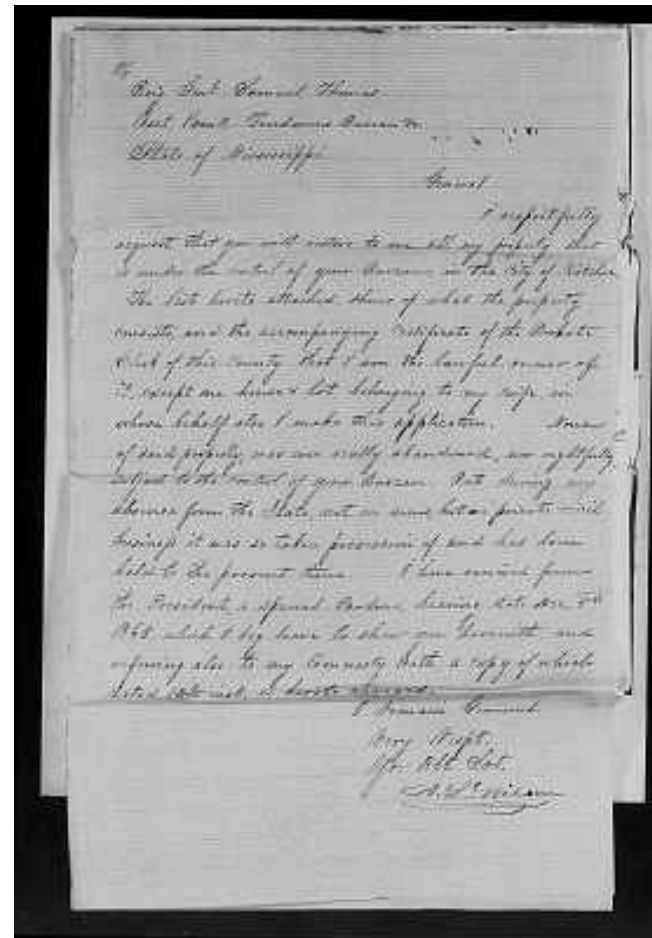 To
Samuel Thomas
Freedmens Bureau
State of Mississippi
General
I respectfully
request that you will restore to me all my property that
is under the control of your Bureau in the City of Natchez
The list hereto attached shows of what the property
consists, and the accompanying Certificate of the Probate
Clerk of this County that I am the lawful owner of
it, except one house & lot belonging to my wife in
whose behalf also I make this application. None
of said property was ever really abandoned, nor rightfully
subject to the control of your Bureau. But during my
absence from the State, not on
business it was so taken possession of and has been
held to the present time. I have received from
the President a special Pardon bearing date
1865 which I beg leave to show you herewith and
referring also to my Amnesty Oath a copy of which
is hereto
I Remain General
Very Respt.
Yr. Obt Svt.